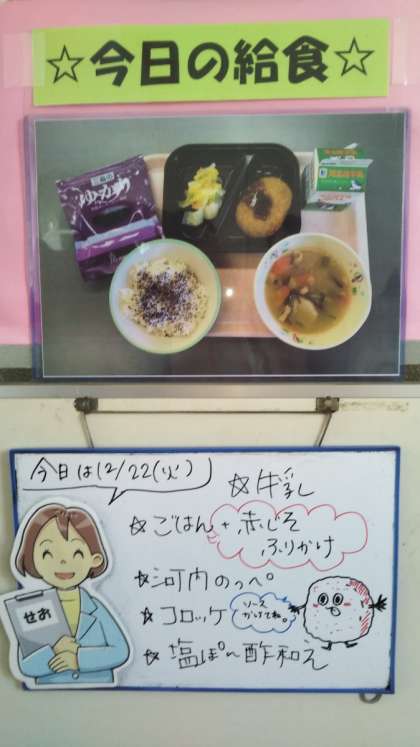 ☆今日の給食☆
三島の
ゆかり
今日は12/22(火)
☆牛乳
☆ごはん+赤じそ
ふりかけ
☆河内のっぺ。
☆コロッケ
ソース
かけてね。
☆塩ぽ〜酢和え
せお